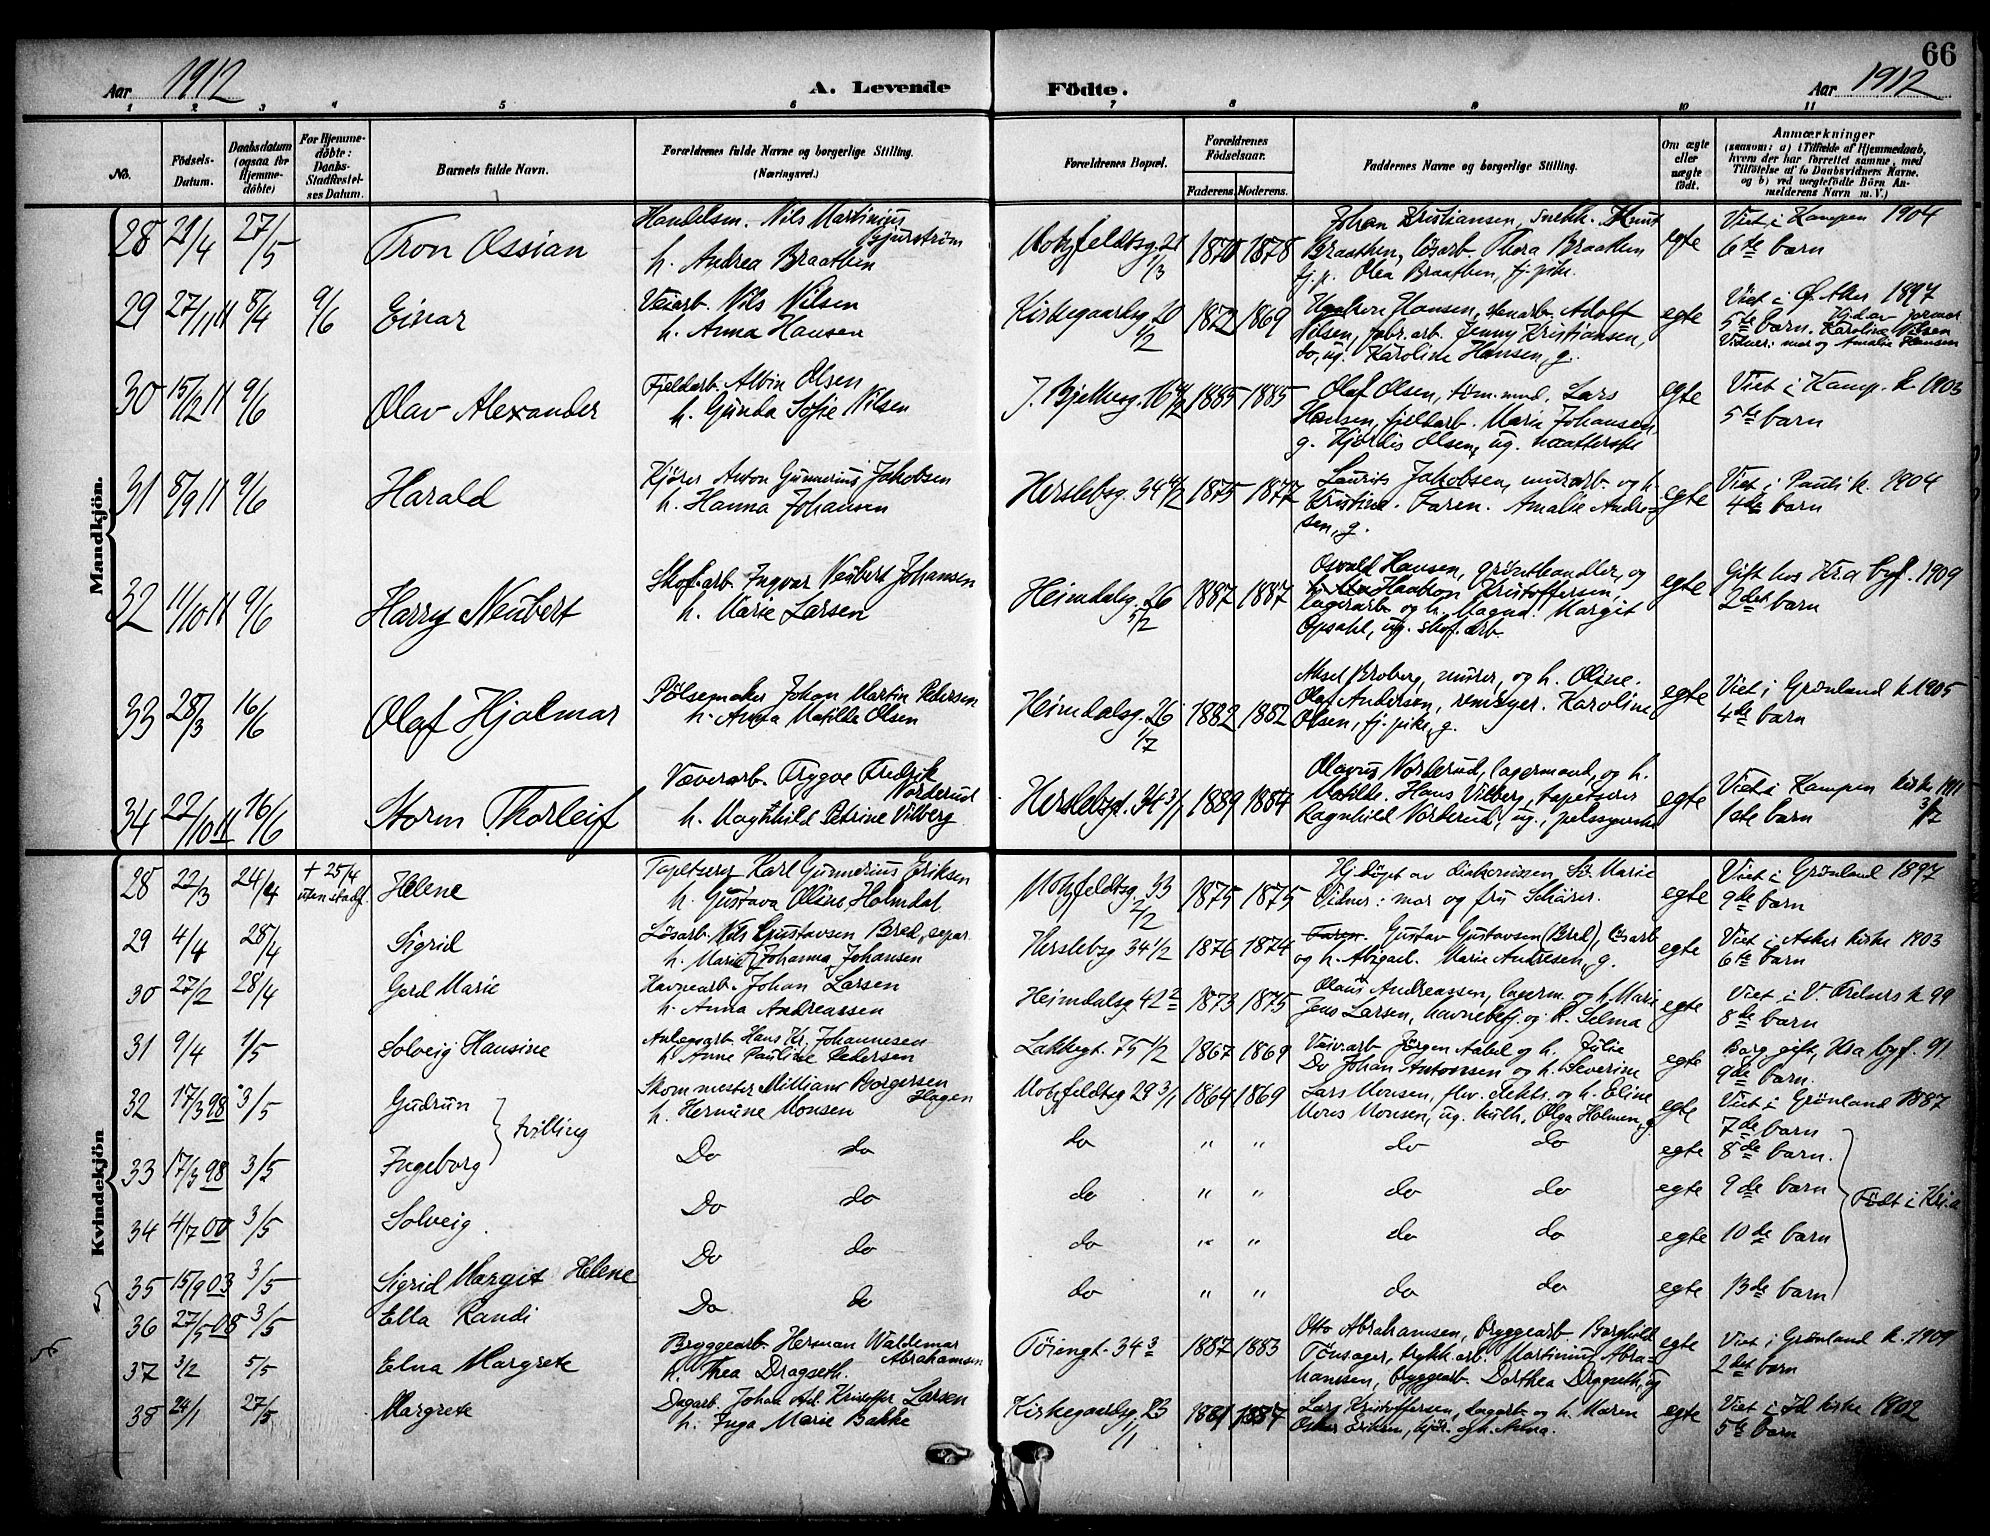 66
Aar 1912 A. Levende Födte. Aar 1912
1 2 3 4 5 6 7 8 9 10 11
No. Födsels-Datum. Daabsdatum (ogsaa for Hjemmedöbte) For Hjemmedöbte: Daabs-Stadfæstelses Datum. Barnets fulde Navn. Forældrenes fulde Navne og borgerlige Stilling. (Næringsvei.) Forældrenes Bopæl. Forældrenes Födselsaar. Faderens. Moderens. Faddernes Navne og borgerlige Stilling. Om ægte eller uægte födt. Anmærkninger (saasom: a) i Tilfælde af Hjemmedaab, hvem der har forrettet samme, med Tilföielse af to Daabsvidners Navne. og b) ved uægtefödte Börn Anmelderens Navn m. V.)
Mandkjön.
28 21/4 27/5 Tron Ossian Handelsm. Nils Martinius Bjurström
h. Andrea Braathen Motzfeldtsg. 21 1/3 1870 1878 Johan Kristiansen, snekk. Knut
Braathen, løsarb. Thora Braathen
fj.p. Olea Braathen, fj. pike. egte Viet i Kampen 1904
6te barn
29 27/11 11 8/4 9/6 Einar Veiarb. Nils Nilsen
h. Anna Hansen Kirkegaardsg 20 1/2 1872 1869 Haakon Hansen, stenarb. Adolf
Nilsen, fabr. arb. Jenny Kristiansen,
do, ug. Karoline Hansen, g. egte Viet i Ø. Aker 1897
5te barn. Hjd av jormor Karoline Nilsen
Vidner: mor og Amalie Hansen
30 15/12 11 9/6 Olav Alexander Fjeldarb. Alvin Olsen
h. Gunda Sofie Nilsen J. Bjelkesg. 16 1885 1885 Olaf Olsen, tøm.md. Lars
Hansen, fjeldarb. Marie Johansen,
g. Hjørdis Olsen, ug. egte Viet i Kamp. k. 1903
5te barn
31 8/9 11 9/6 Harald Kjører Anton Gunnerius Jakobsen
h. Hanna Johansen Herslebsg. 34 1875 1877 Laurits Jakobsen, murarb. og h.
Kristine. Faren. Amalie Andresen, g. egte Viet i Pauli k. 1904
4de barn
32 11/10 11 9/6 Harry Neubert Skof. arb Ingvar Neubert Johansen
h. Marie Larsen Heimdalsg. 26 1887 1887 Osvald Hansen, grønthandler, og
Haakon Kristoffersen,
lagerarb og h. Magna. Margit
Opsahl, ug. skof. arb. egte Gift hos Kra byf. 1909
2det barn
33 28/3 16/6 Olaf Hjalmar Pølsemaker Johan Martin Pedersen
h. Anna Matilde Olsen Heimdalsg. 26 1/7 1882 1882 Aksel Broberg, murer, og h. Oline.
Olaf Andersen, remskjer. Karoline
Olsen, fj. pike, g. egte Viet i Grønland k 1905
4de barn
34 22/10 11 16/6 Storm Thorleif Væverarb. Trygve Fredrik Norderud
h. Magthild Petrine Vilberg Herslebsgt. 34 3/1 1889 1884 Olavus Norderud, lagermand, og h.
Matilde. Hans Vilberg, tapetserer
Ragnhild Norderud, ug., pelssyerske egte Viet i Kampen kirke 1911 3/7
1ste barn
Kvindekjön
28 22/3 24/4 + 25/4 uten stadf. Helene Tapetserer Karl Gunnerius Eriksen
h. Gustava Oline Holmdal Motzfeldtsg. 33 2/2 1875 1875 Hj.døpt av diakonissen Ss. Marie
Vidner: mor og fru Schärer. egte Viet i Grønland 1897
9de barn
29 4/4 28/4 Sigrid Løsarb. Nils Gustavsen Bred, separ.
h. Marie Johanna Johansen Herslebsg 34 1/2 1876 1874 Faren. Gustav Gustavsen (Bred), løsarb
og h. Abigael. Marie Andresen, g. egte Viet i Asker kirke 1903
6te barn
30 27/2 28/4 Gerd Marie Havnearb. Johan Larsen
h. Anna Andreassen Heimdalsg 42 2 1873 1875 Olaus Andreassen, lagerm. og h. Marie
Jens Larsen, havnebetj. og h. Selma egte Viet i V. Frelsers k. 99
8de barn
31 9/4 1/5 Solveig Hansine Anlegsarb Hans Kr. Johannesen
h. Anne Pauline Pedersen Lakkegt. 75 1/2 1867 1869 Veiv. arb Jørgen Aabel og h. Julie
Do Johan Antonsen og h. Severine egte Borg. gift, Kra byf. 91
9de barn.
32 17/3 98 3/5 Gudrun } tvilling Skom mester Milliam Borgersen Hagen
h. Hermine Monsen Motzfeldtsg 29 3/1 1864 1869 Lars Monsen, og h. Eline
Mons Monsen, ug. kulh. Olga Holmen, g. egte Viet i Grønland 1887
7de barn
33 17/3 98 3/5 Ingeborg Do do do " " do do egte 8de barn.
34 4/7 00 3/5 Solveig. Do do do " " do do egte 9de barn } Født i Kr.a
35 15/9 03 3/5 Sigrid Margit Helene Do do do " " do do egte 10de barn
36 27/5 08 3/5 Ella Randi Do do do " " do do egte 13de barn
37 3/2 5/5 Elna Margrete Bryggearb. Herman Waldemar Abrahamsen
h. Thea Dragseth. Tøiengt. 34 3 1887 1883 Otto Abrahamsen, bryggearb Borghild
Tønsager, trykk.arb. Martinius Abrahamsen, bryggearb. Dorthea Dragseth, ug egte Viet i Grønland k. 1909
2det barn
38 24/1 27/5 Margrete Dagarb. Johan Ad. Kristoffer Larsen
h. Inga Marie Bakke Kirkegaardsg. 23 1/1 1881 1887 Lars Kristoffersen, dagarb og h. Maren
Oskar Eriksen, kjør. og h. Alma. egte Viet i Id kirke 1902
5te barn